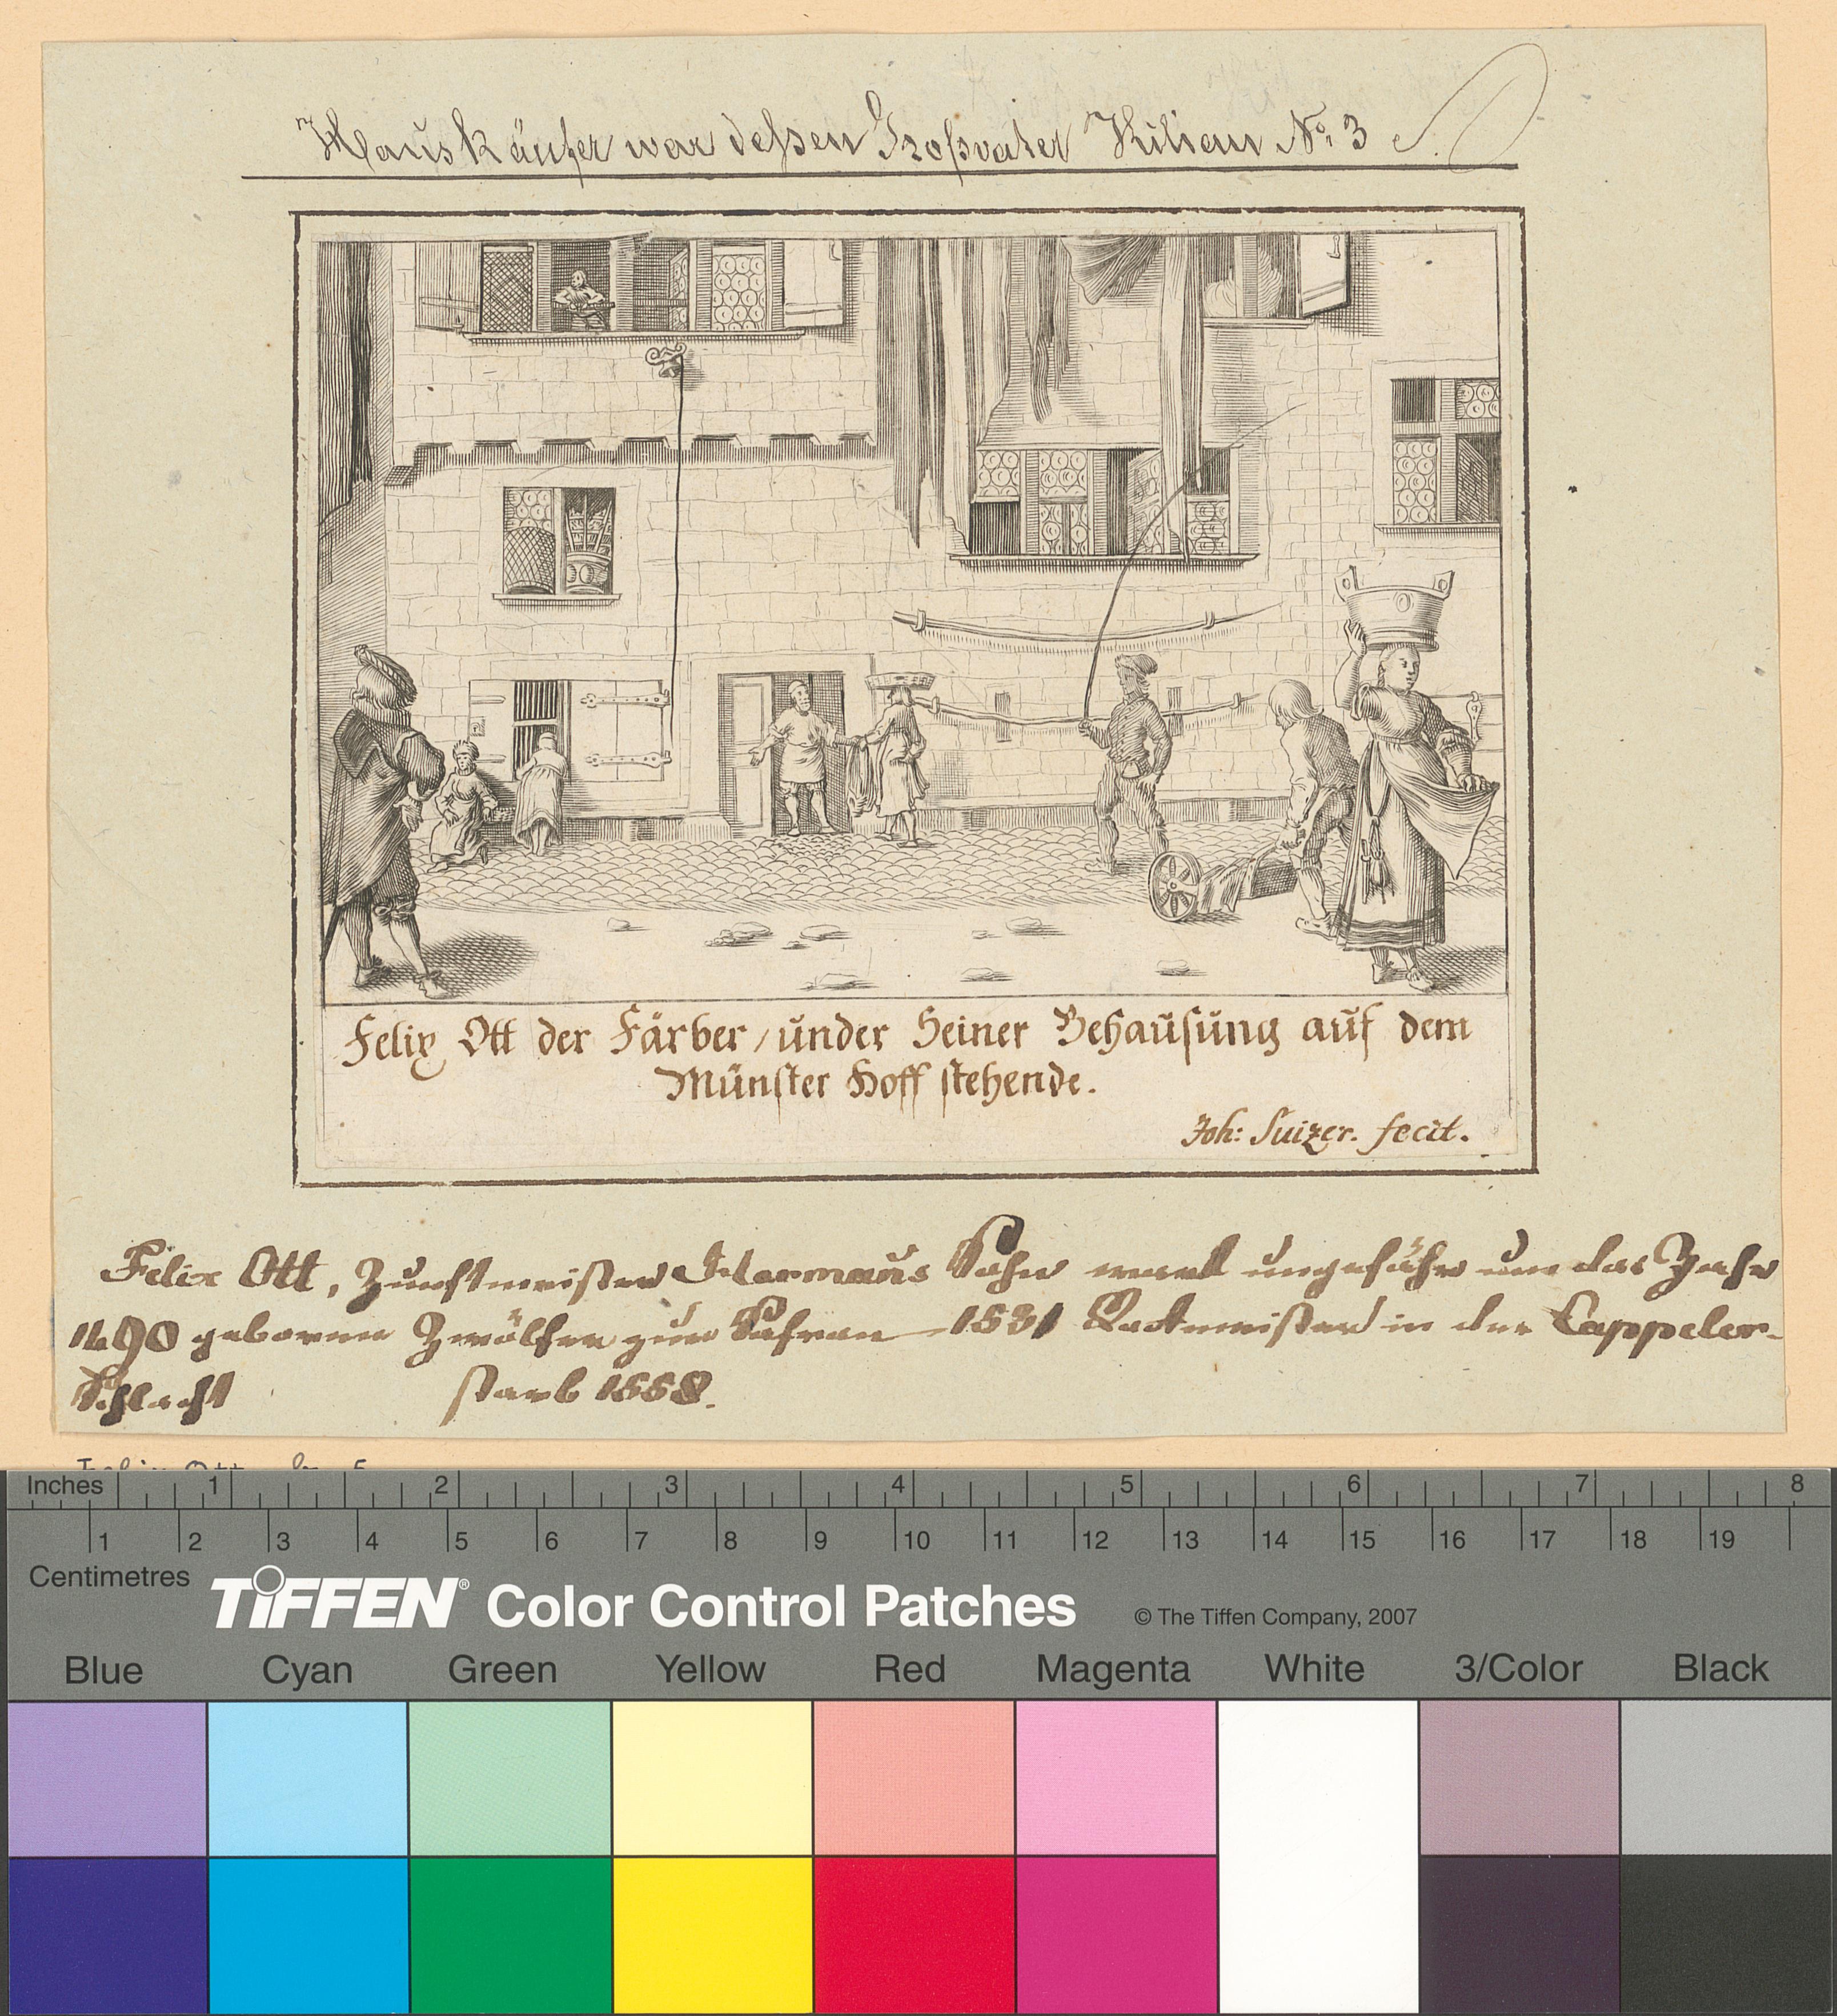 Hauskäufer war dessen Großvater Kilian No. 3
Felix Ott der Färber / ünder Seiner Behaüsüng aüf dem
Münster Hoff stehende.
Joh: Suizer. fecit.
Felix Ott, Zunftmeister Harmans Sohn ward ungefähr um das Jahr
1490 geboren Zwölfer zur Safran – 1531 Rottmeister in der Cappeler-
Schlacht starb 1558.
Felix Ott
Inches 1 2 3 4 5 6 7 8
1 2 3 4 5 6 7 8 9 10 11 12 13 14 15 16 17 18 19
Centimetres
TIFFEN® Color Control Patches © The Tiffen Company, 2007
Blue Cyan Green Yellow Red Magenta White 3/Color Black